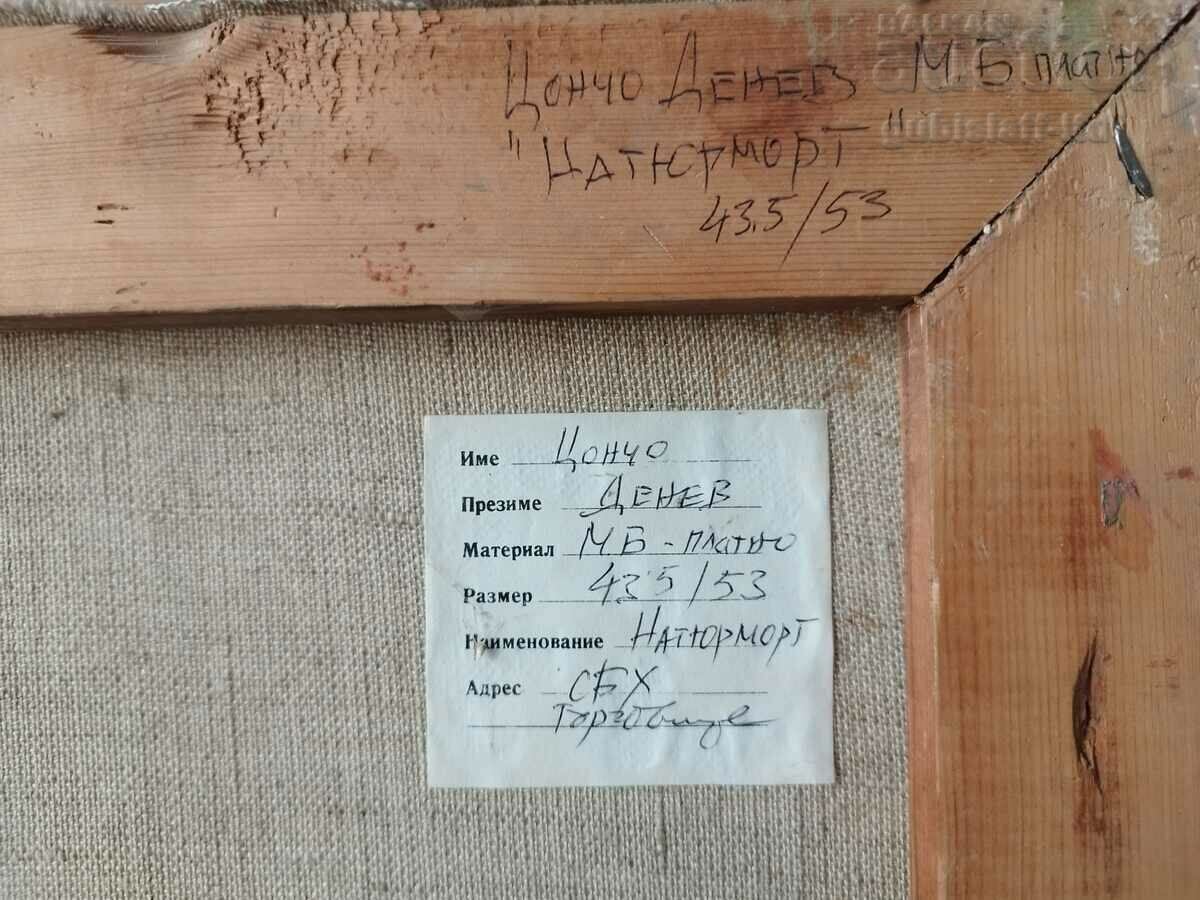 Цончо Денев М.Б. платно
"Натюрморт"
43.5/53
Име Цончо
Презиме Денев
Материал М.Б - платно
Размер 43.5/53
Наименование Натюрморт
Адрес СБХ
Търговище